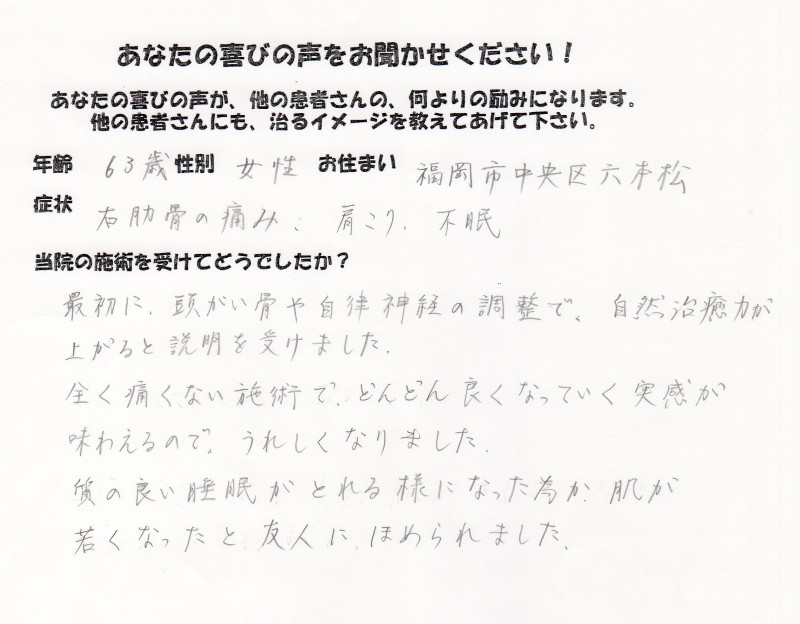 あなたの喜びの声をお聞かせください！
あなたの喜びの声が、他の患者さんの、何よりの励みになります。
他の患者さんにも、治るイメージを教えてあげて下さい。
年齢 63歳 性別 女性 お住まい 福岡市中央区六本松
症状 右肋骨の痛み、肩こり、不眠
当院の施術を受けてどうでしたか？
最初に、頭がい骨や自律神経の調整で、自然治癒力が
上がると説明を受けました。
全く痛くない施術で、どんどん良くなっていく実感が
味わえるので、うれしくなりました。
質の良い睡眠がとれる様になった為か、肌が
若くなったと友人に、ほめられました。